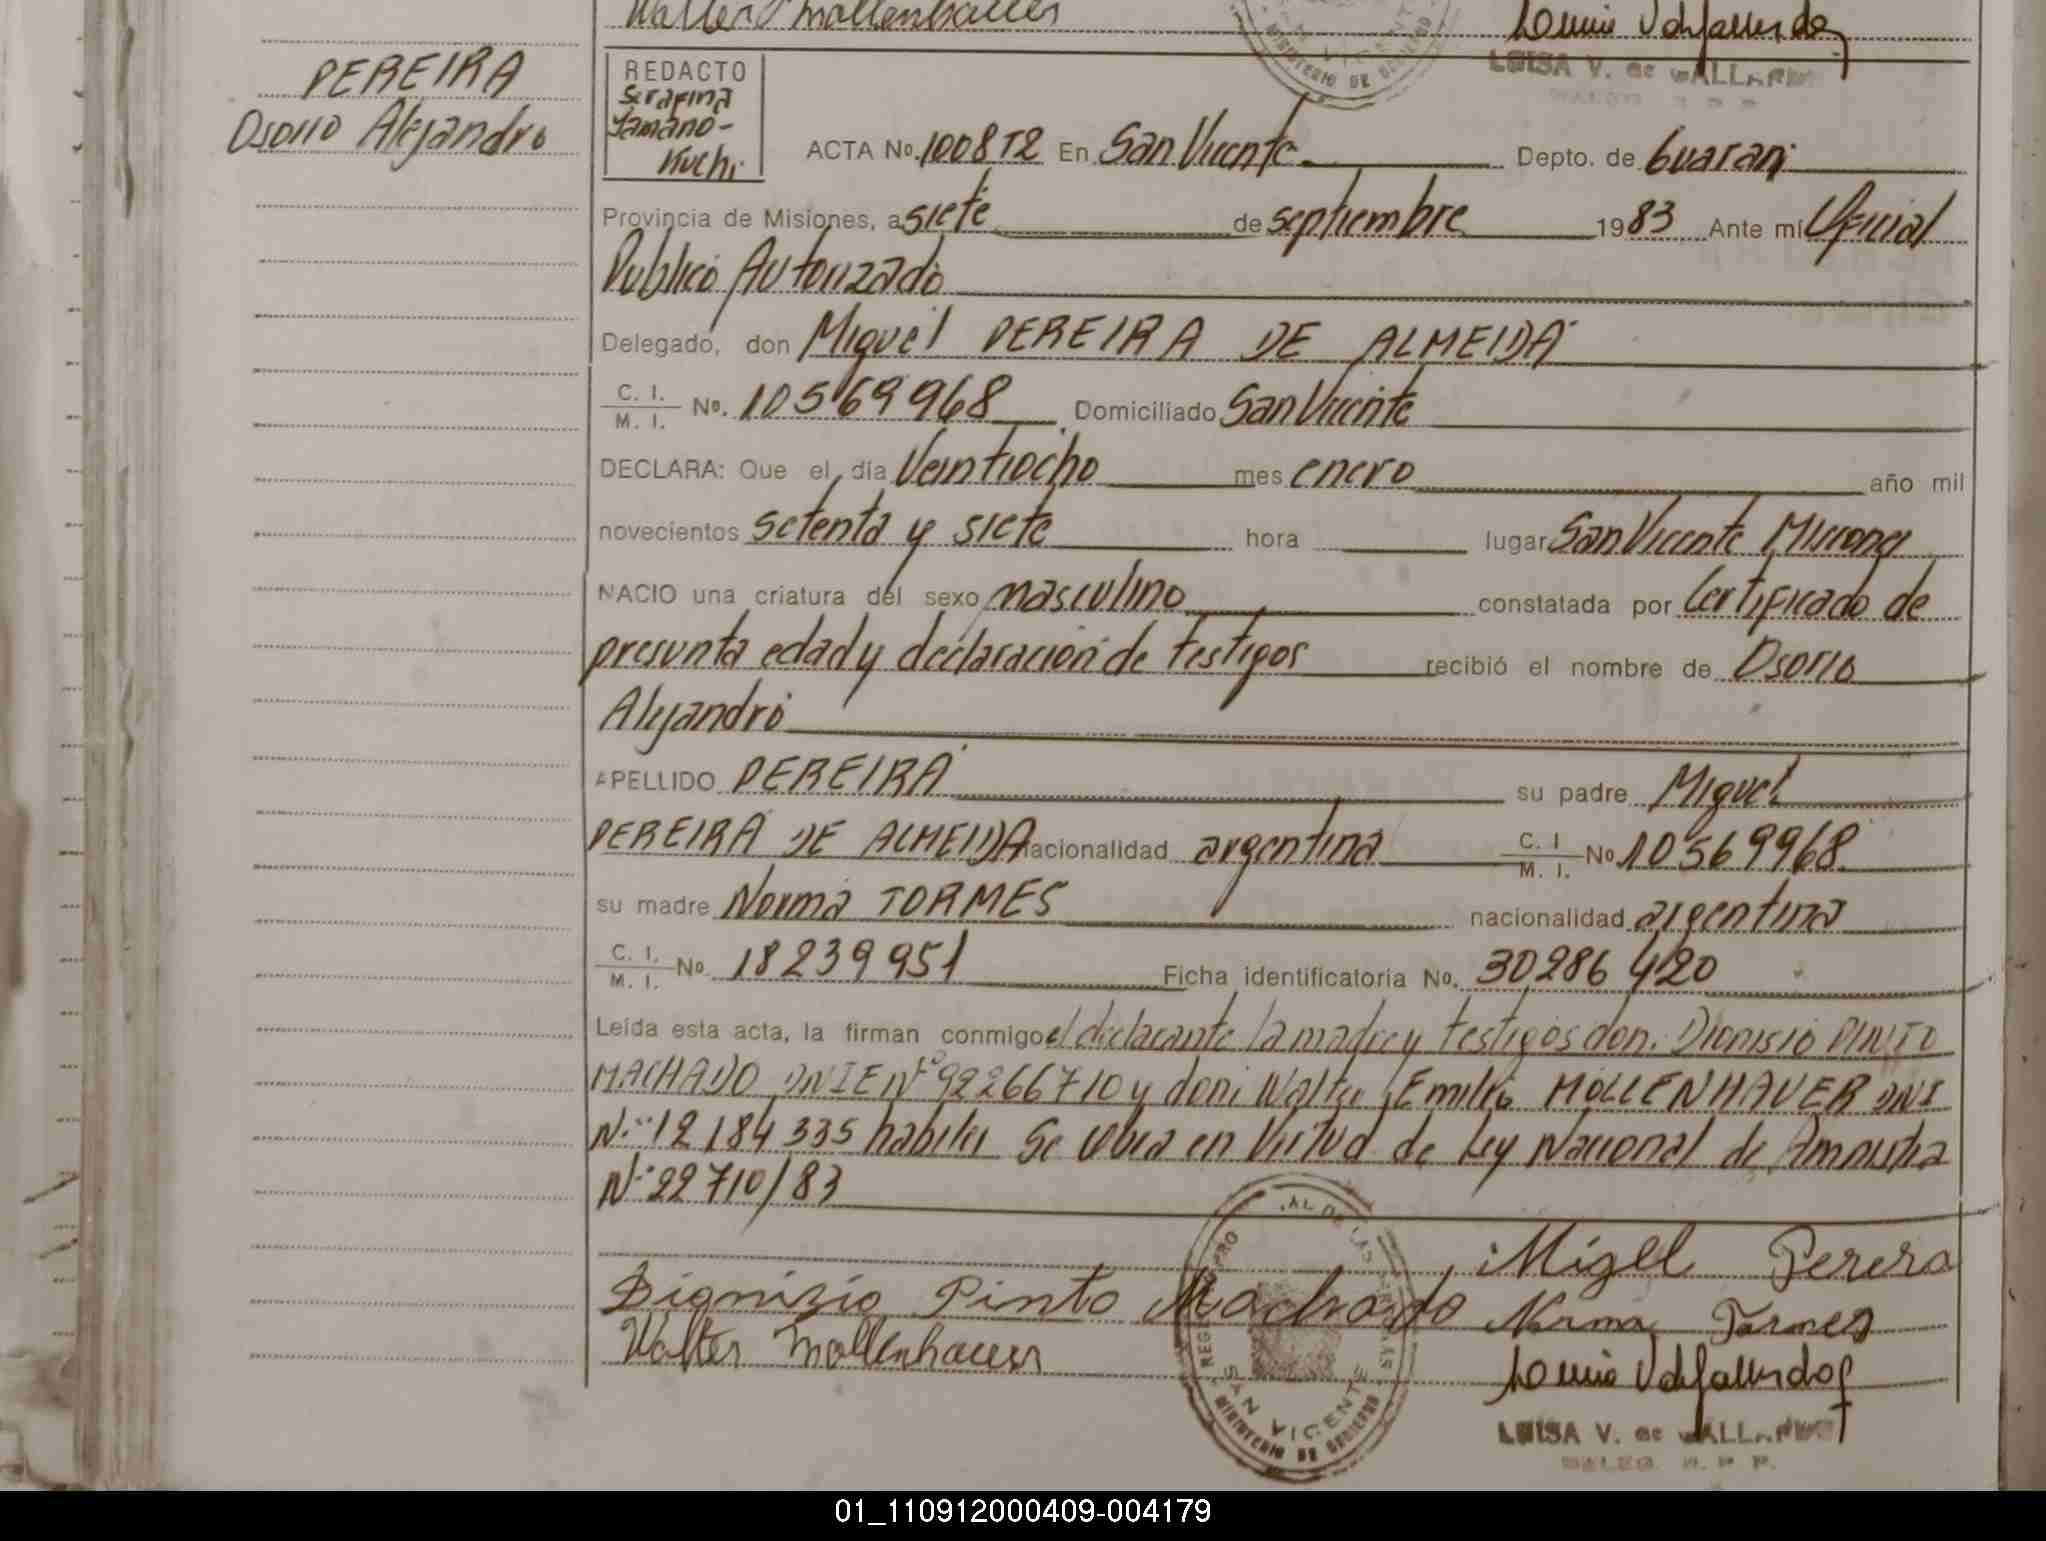 Walter Mollenhauer
LUISA V. de GALLARDO
PEREIRA
Osorio Alejandro
REDACTO
Serafina
Yamano-
Kuchi
ACTA No. 1008T2 En San Vicente Depto. de Guarani
Provincia de Misiones, a siete de septiembre 1983 Ante mí Oficial
Publico Autorizado
Delegado, don Miguel PEREIRA DE ALMEIDA
C. I.
M. I. No. 10569968 Domiciliado San Vicente
DECLARA: Que el día Veintiocho mes enero año mil
novecientos setenta y siete hora lugar San Vicente Misiones
NACIO una criatura del sexo masculino constatada por Certificado de
presunta edad y declaración de testigos recibió el nombre de Osorio
Alejandro
APELLIDO PEREIRA su padre Miguel
PEREIRA DE ALMEIDA nacionalidad argentina C. I M. I. No 10569968
su madre Norma TORMES nacionalidad argentina
C. I.
M. I. No. 18239951 Ficha identificatoria No. 30286420
Leída esta acta, la firman conmigo el declarante la madre y testigos don. Dionisio PINTO
MACHADO DNIE Nº 92266710 y don: Walter Emilio MOLLENHAUER DNI
Nº 12184335 habiles Se labra en Virtud de Ley Nacional de Amnistia
Nº 22710/83
Migel Perera
Dignizio Pinto Machado Norma Tormes
Walter Mollenhauer
SAN VICENTE
MINISTERIO DE GOBIERNO
LUISA V. de GALLARDO
01_110912000409-004179